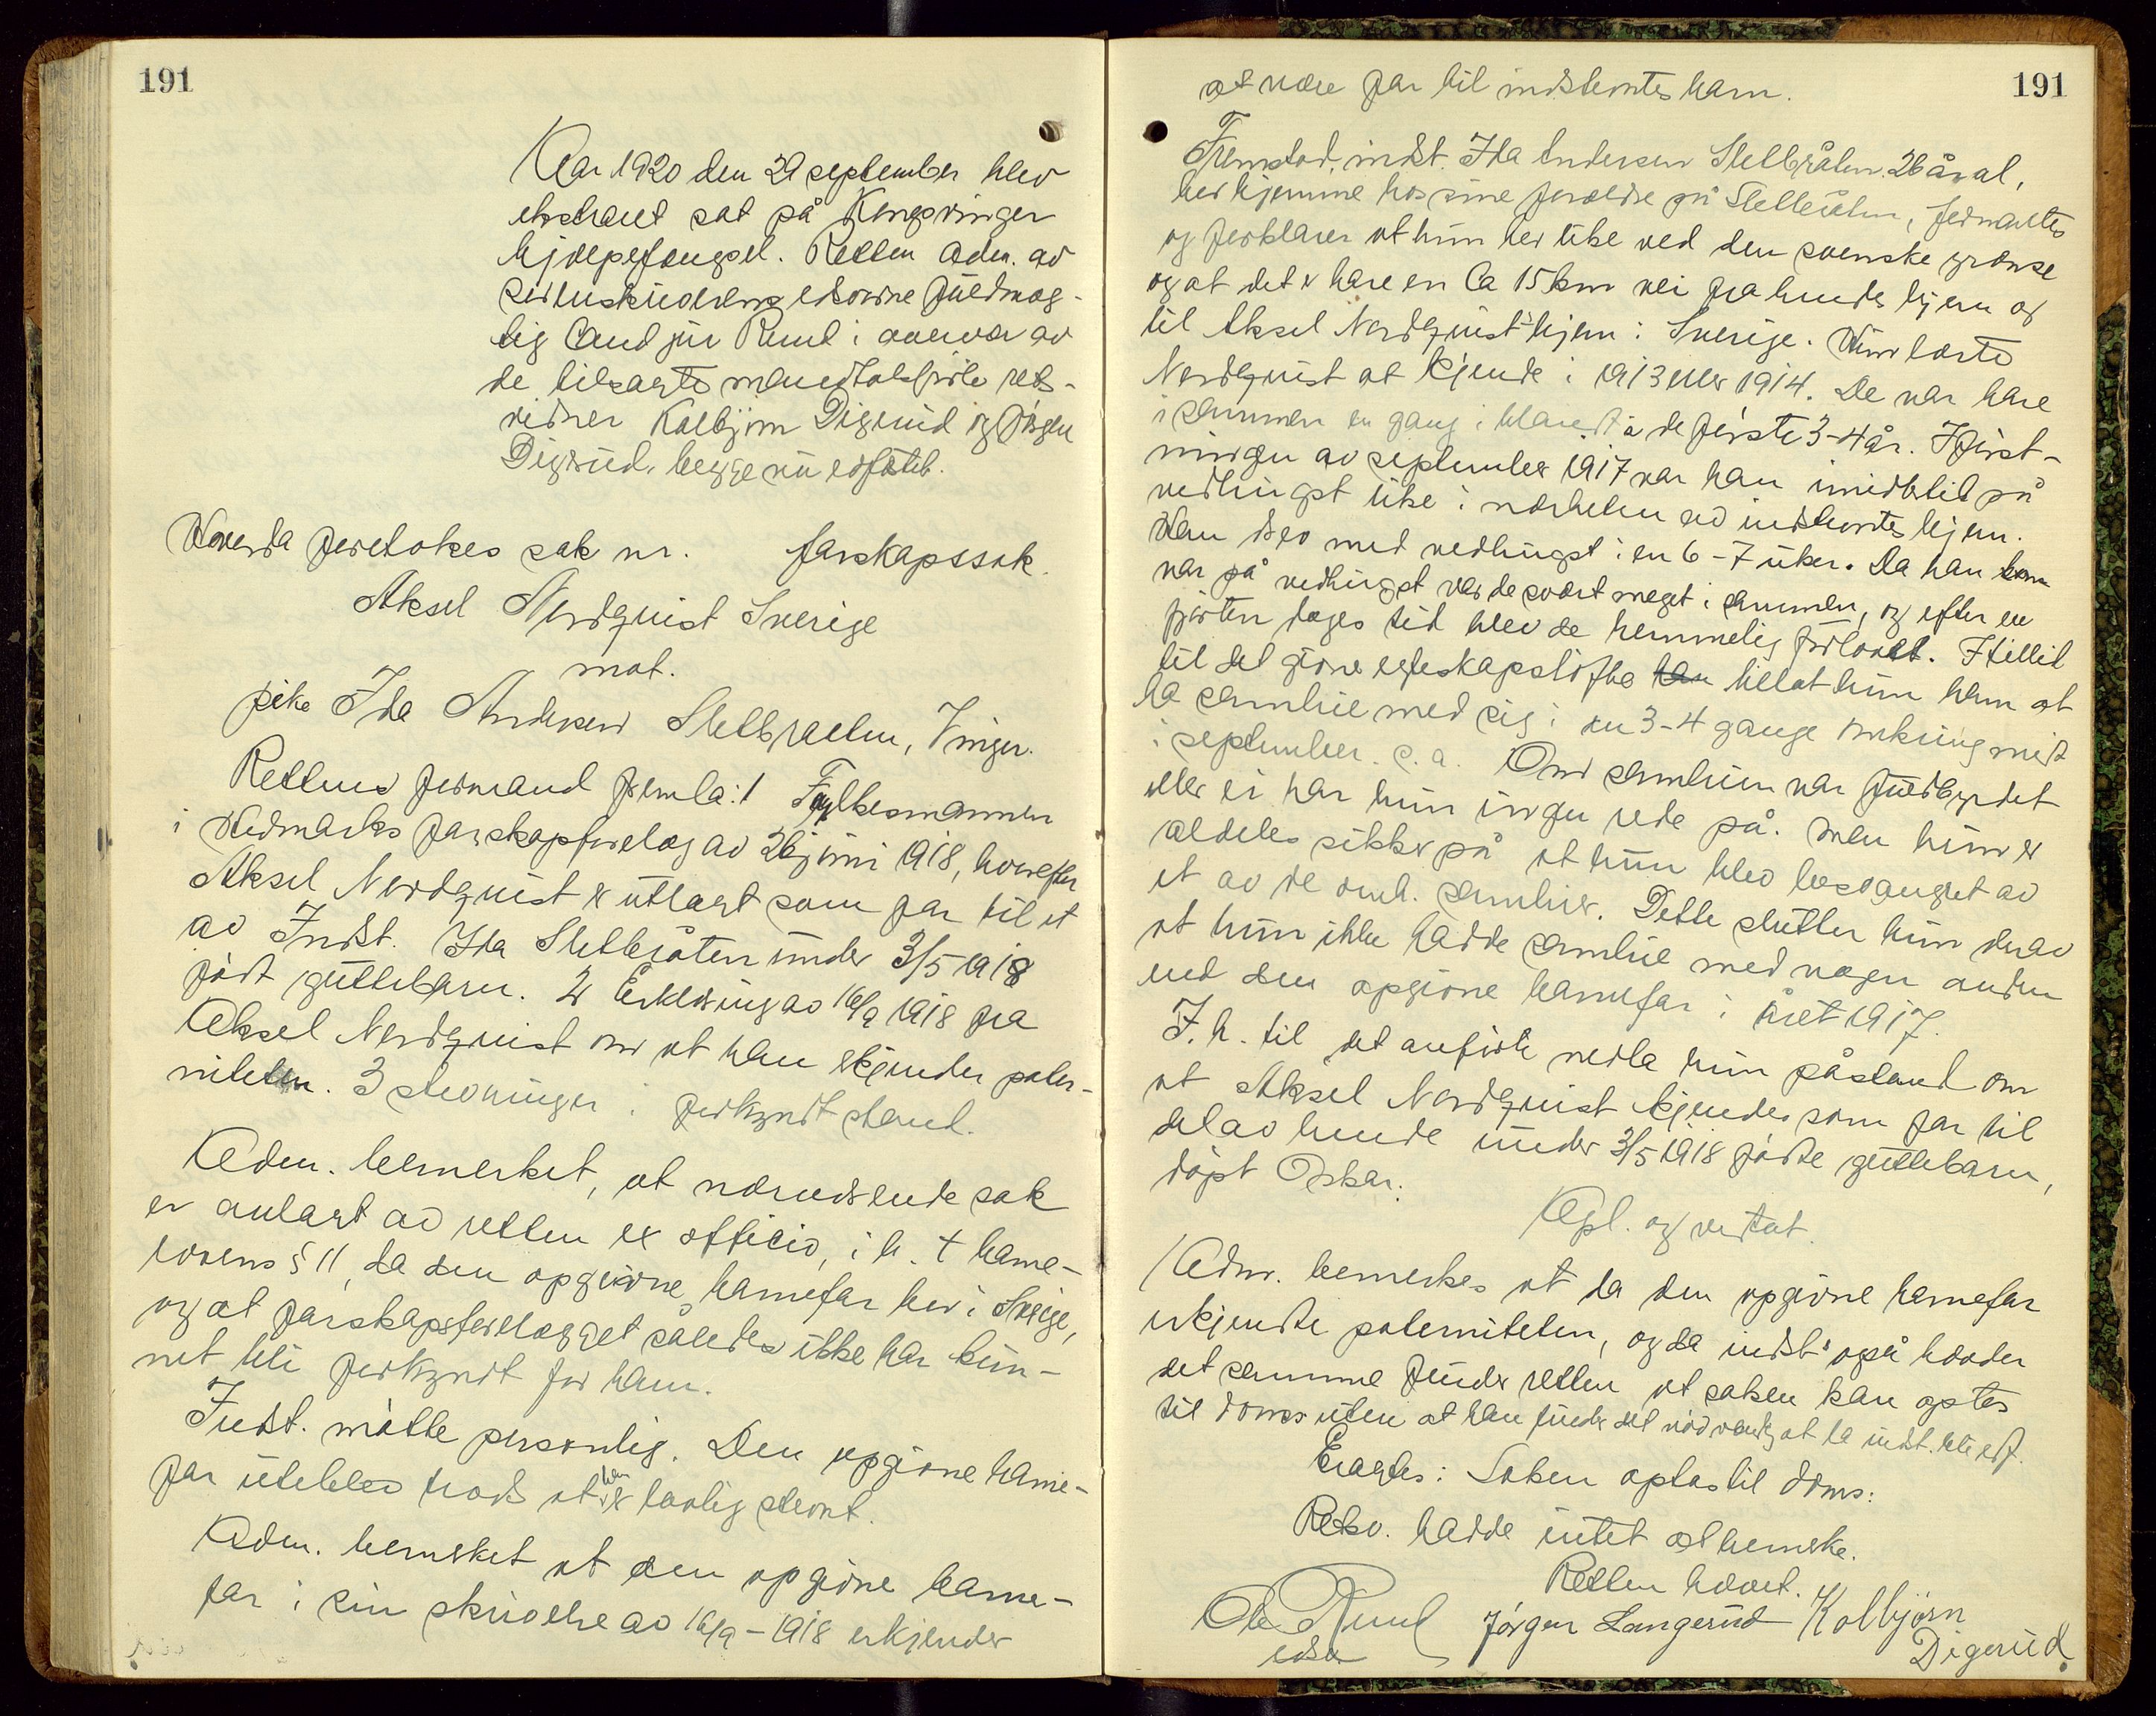 191
Aar 1920 den 29 september blev
ekstraret sat på Kongsvinger
hjælpefængsel. Retten adm. av
sorenskriverens edsvorne fuldmæg-
tig Cand jur Ruud i overvær av
de tilsagte mandtalsførte rets-
vidner Kolbjørn Digerud og Jørgen
Digerud, begge nu edfæstet.
Hvorda foretokes sak nr. farskapssak.
Aksel Nordquist Sverige
mot.
pike Ida Andersen Sletbraaten, Vinger.
Rettens formand fremla: 1 Fylkesmannen
i Hedmarks farskapforelæg av 26 juni 1918, hvorefter
Aksel Nordquist er utlagt som far til et
av Indst. Ida Sletbråten under 3/5 1918
født guttebarn. 2 Erklæring av 16/9 1918 fra
Aksel Nordquist om at han erkjender pater-
niteten. 3 stevninger i forkyndt stand.
Adm. bemerket, at nærværende sak
er anlagt av retten ex officio, i h. t barne-
lovens § 11, da den opgivne barnefar bor i Sverige,
og at farskapsforelægget således ikke har kun-
net bli forkyndt for ham.
Indst. møtte personlig. Den opgivne barne-
far uteblev trods at han er lovlig stevnt.
Adm. bemerket at den opgivne barne-
far i sin skrivelse av 16/9 - 1918 erkjender
191
at være far til indstevntes barn.
Fremstod indst. Ida Andersen Sletbråten 26 år al,
bor hjemme hos sine foreldre på Sletbråten, formantes
og forklarer at hun bor like ved den svenske grænse
og at det er bare en Ca 15 km vei fra hendes hjem og
til Aksel Nordquist's hjem i Sverige. Hun lærte
Nordquist at kjende i 1913 eller 1914. De var bare
i sammen en gang i blandt i de første 3-4 år. I først-
ningen av september 1917 var han imidlertid på
vedhugst like i nærheten av indstevntes hjem.
Han drev med vedhugst i en 6-7 uker. Da han kom
var på vedhugst var de svært meget i sammen, og efter en
fjorten dages tid blev de hemmelig forlovet. I tillid
til det givne egteskapsløfte han tillot hun ham at
ha samleie med sig i en 3-4 gange omkring midt
i september s. a. Om samleien var fuldbyrdet
eller ei har hun ingen rede på. Men hun er
aldeles sikker på at hun blev besvangret av
et av de omh. samleier. Dette slutter hun derav
at hun ikke hadde samleie med nogen anden
end den opgivne barnefar i året 1917.
I. h. til det anførte nedla hun påstand om
at Aksel Nordquist kjendes som far til
det av hende under 3/5 1918 fødte guttebarn,
døpt Oskar.
Opl. og vedtat.
Adm. bemerkes at da den opgivne barnefar
erkjendte paterniteten, og da indst. også hævder
det samme finder retten at saken kan optas
til doms uten at han finder det nødvendig at la indst. bli edf.
Eragtes: Saken optas til doms:
Retsv. hadde intet at bemerke.
Retten hævet.
Ole Ruud Jørgen Langerud Kolbjørn
edsv Digerud